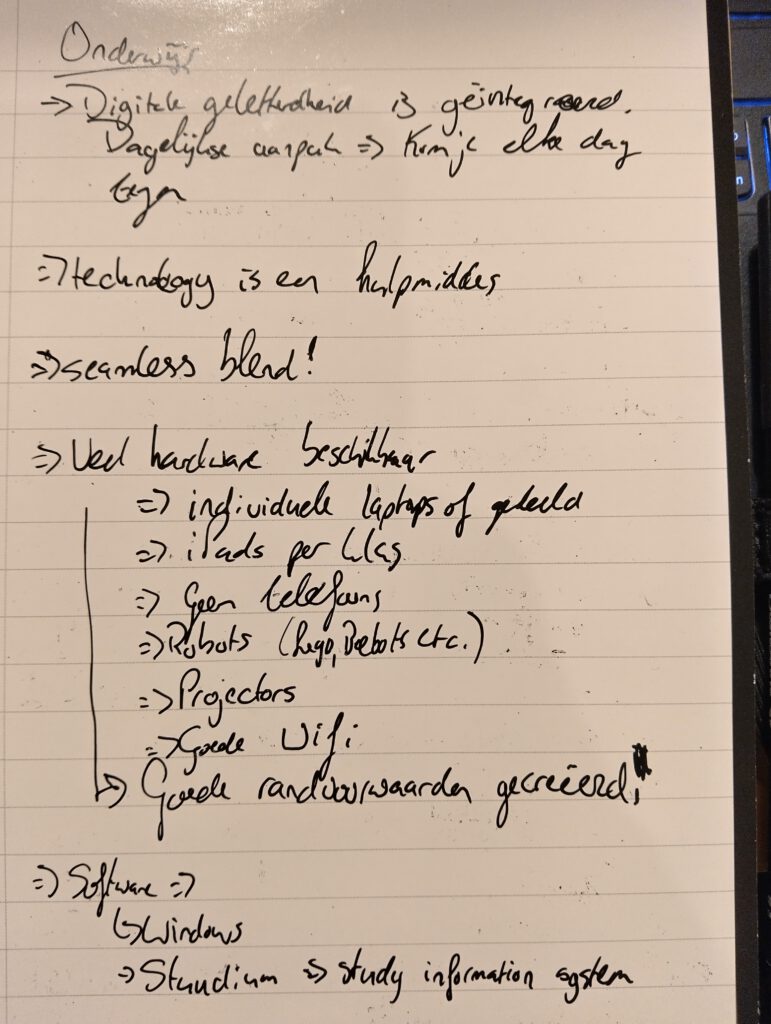 Onderwijs
→ Digitale geletterdheid is geïntegreerd.
Dagelijkse aanpak => Kom je elke dag
tegen
=> technology is een hulpmiddel
=> seamless blend!
=> Veel hardware beschikbaar
=> individuele laptops of gedeeld
=> iPads per klas
=> Geen telefoons
=> Robots (Lego, Beebots etc.)
=> Projectors
=> Goede Wifi
→ Goede randvoorwaarden gecreëerd!
=> Software =>
↳ Windows
=> Studium => study information system